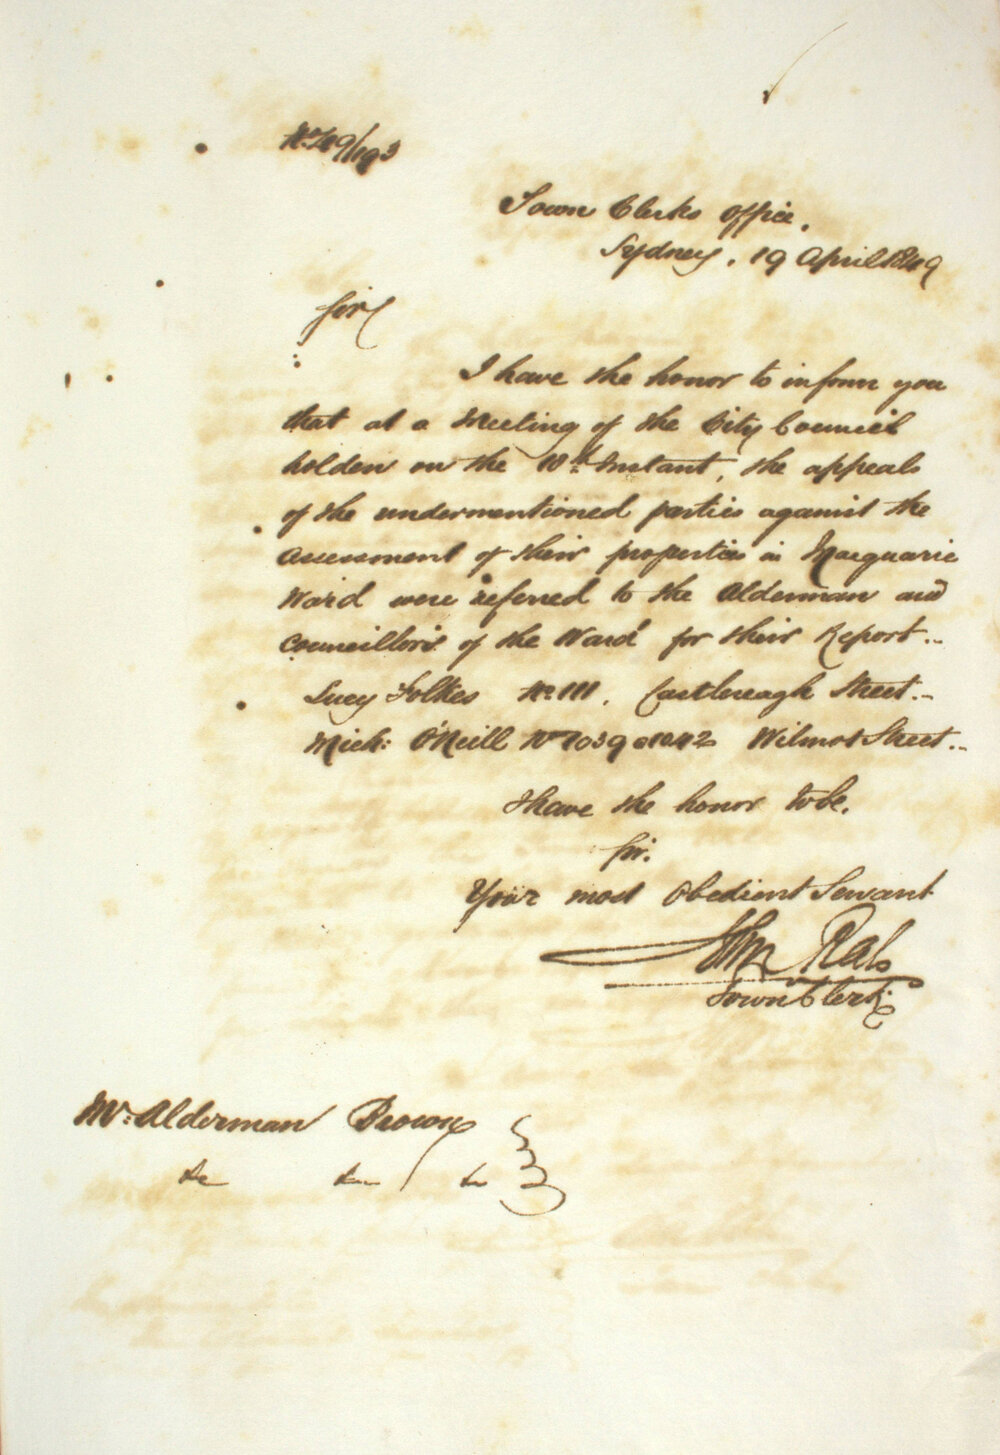 No 49/193
Town Clerks Office,
Sydney, 19 April 1849
Sir
I have the honor to inform you
that at a Meeting of the City Council
holden on the 10th Instant, the appeals
of the undermentioned parties against the
assessment of their properties in Macquarie
Ward were referred to the Alderman and
Councillors of the Ward for their Report..
Lucy Folkes No 111, Castlereagh Street..
Mich: O'Neill No 1039 1042 Wilmot Street..
I have the honor to be,
Sir.
Your most Obedient Servant
John Rae
Town Clerk
Mr. Alderman Brown
&c &c &c